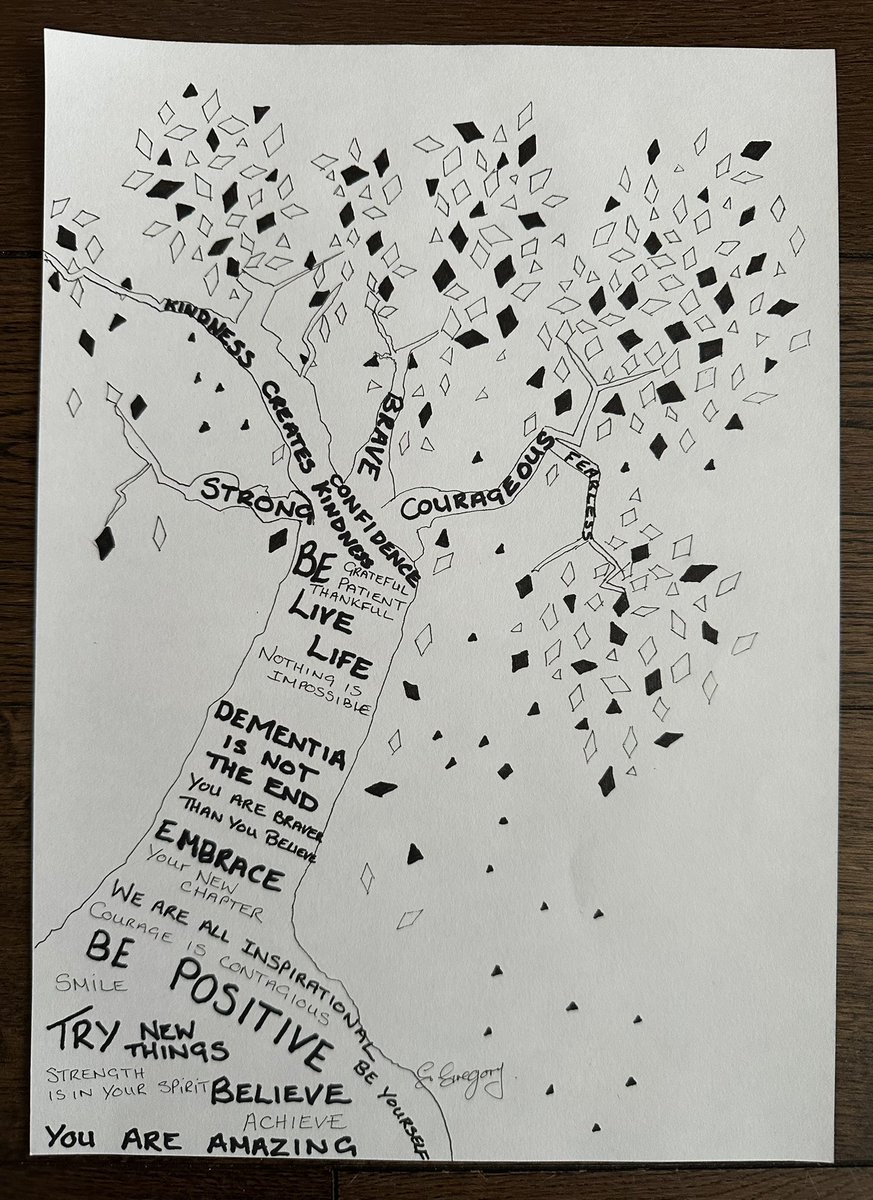 KINDNESS CREATES KINDNESS
BRAVE
STRONG
CONFIDENCE
COURAGEOUS
FEARLESS
BE
GRATEFUL
PATIENT
THANKFUL
LIVE
LIFE
NOTHING IS
IMPOSSIBLE
DEMENTIA
IS NOT
THE END
YOU ARE BRAVER
THAN YOU BELIEVE
EMBRACE
YOUR NEW
CHAPTER
WE ARE ALL INSPIRATIONAL
COURAGE IS CONTAGIOUS
BE POSITIVE
SMILE
BE YOURSELF
TRY NEW
THINGS
STRENGTH
IS IN YOUR SPIRIT
BELIEVE
ACHIEVE
YOU ARE AMAZING
G Gregory